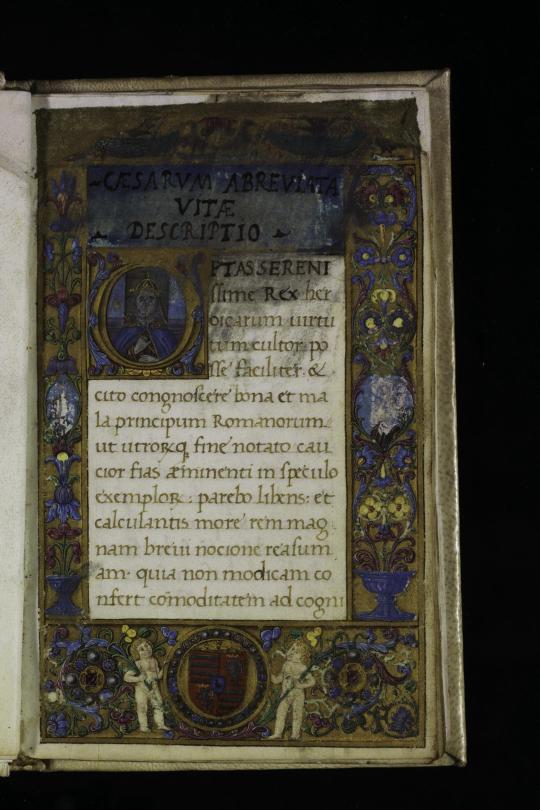 ~CÆSARVM ABREVIATA
VITÆ
DESCRIPTIO
OPTAS SERENI
ssime Rex her
oicarum uirtu
tum cultor. po
sse faciliter. &
cito congnoscere bona et ma
la principum Romanorum
ut utrorꝫqꝫ fine notato cau
cior fias æminenti in speculo
exemplorꝫ: parebo libens: et
calculantis more rem mag
nam breui nocione reasum
am. quia non modicam co
nfert comoditatem ad cogni